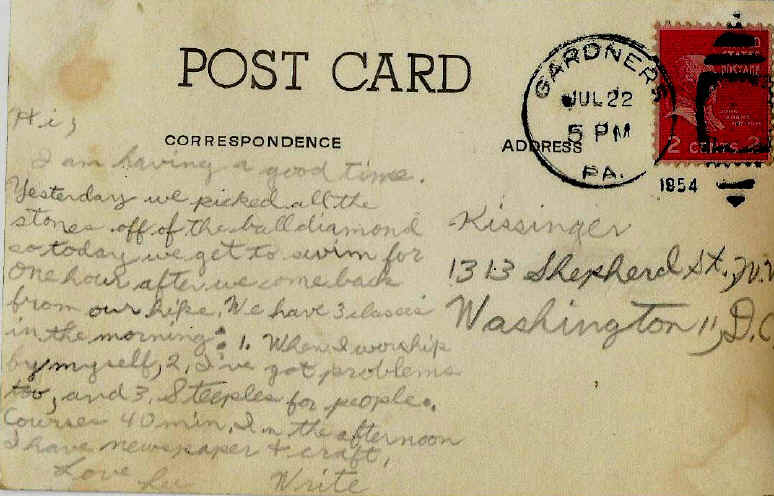 POST CARD
CORRESPONDENCE
ADDRESS
GARDNERS
JUL 22
5 PM
PA.
1954
STATES
POSTAGE
2 CENTS 2
Hi,
I am having a good time.
Yesterday we picked all the
stones off of the ball diamond
so today we get to swim for
one hour after we come back
from our hike. We have 3 classes
in the morning: 1. When I worship
by myself, 2, I've got problems
too, and 3, Steeples for people.
Courses 40 min, In the afternoon
I have newspaper + craft,
Love
Write
Kissinger
1313 Shepherd St., N.W
Washington 11, D.C.